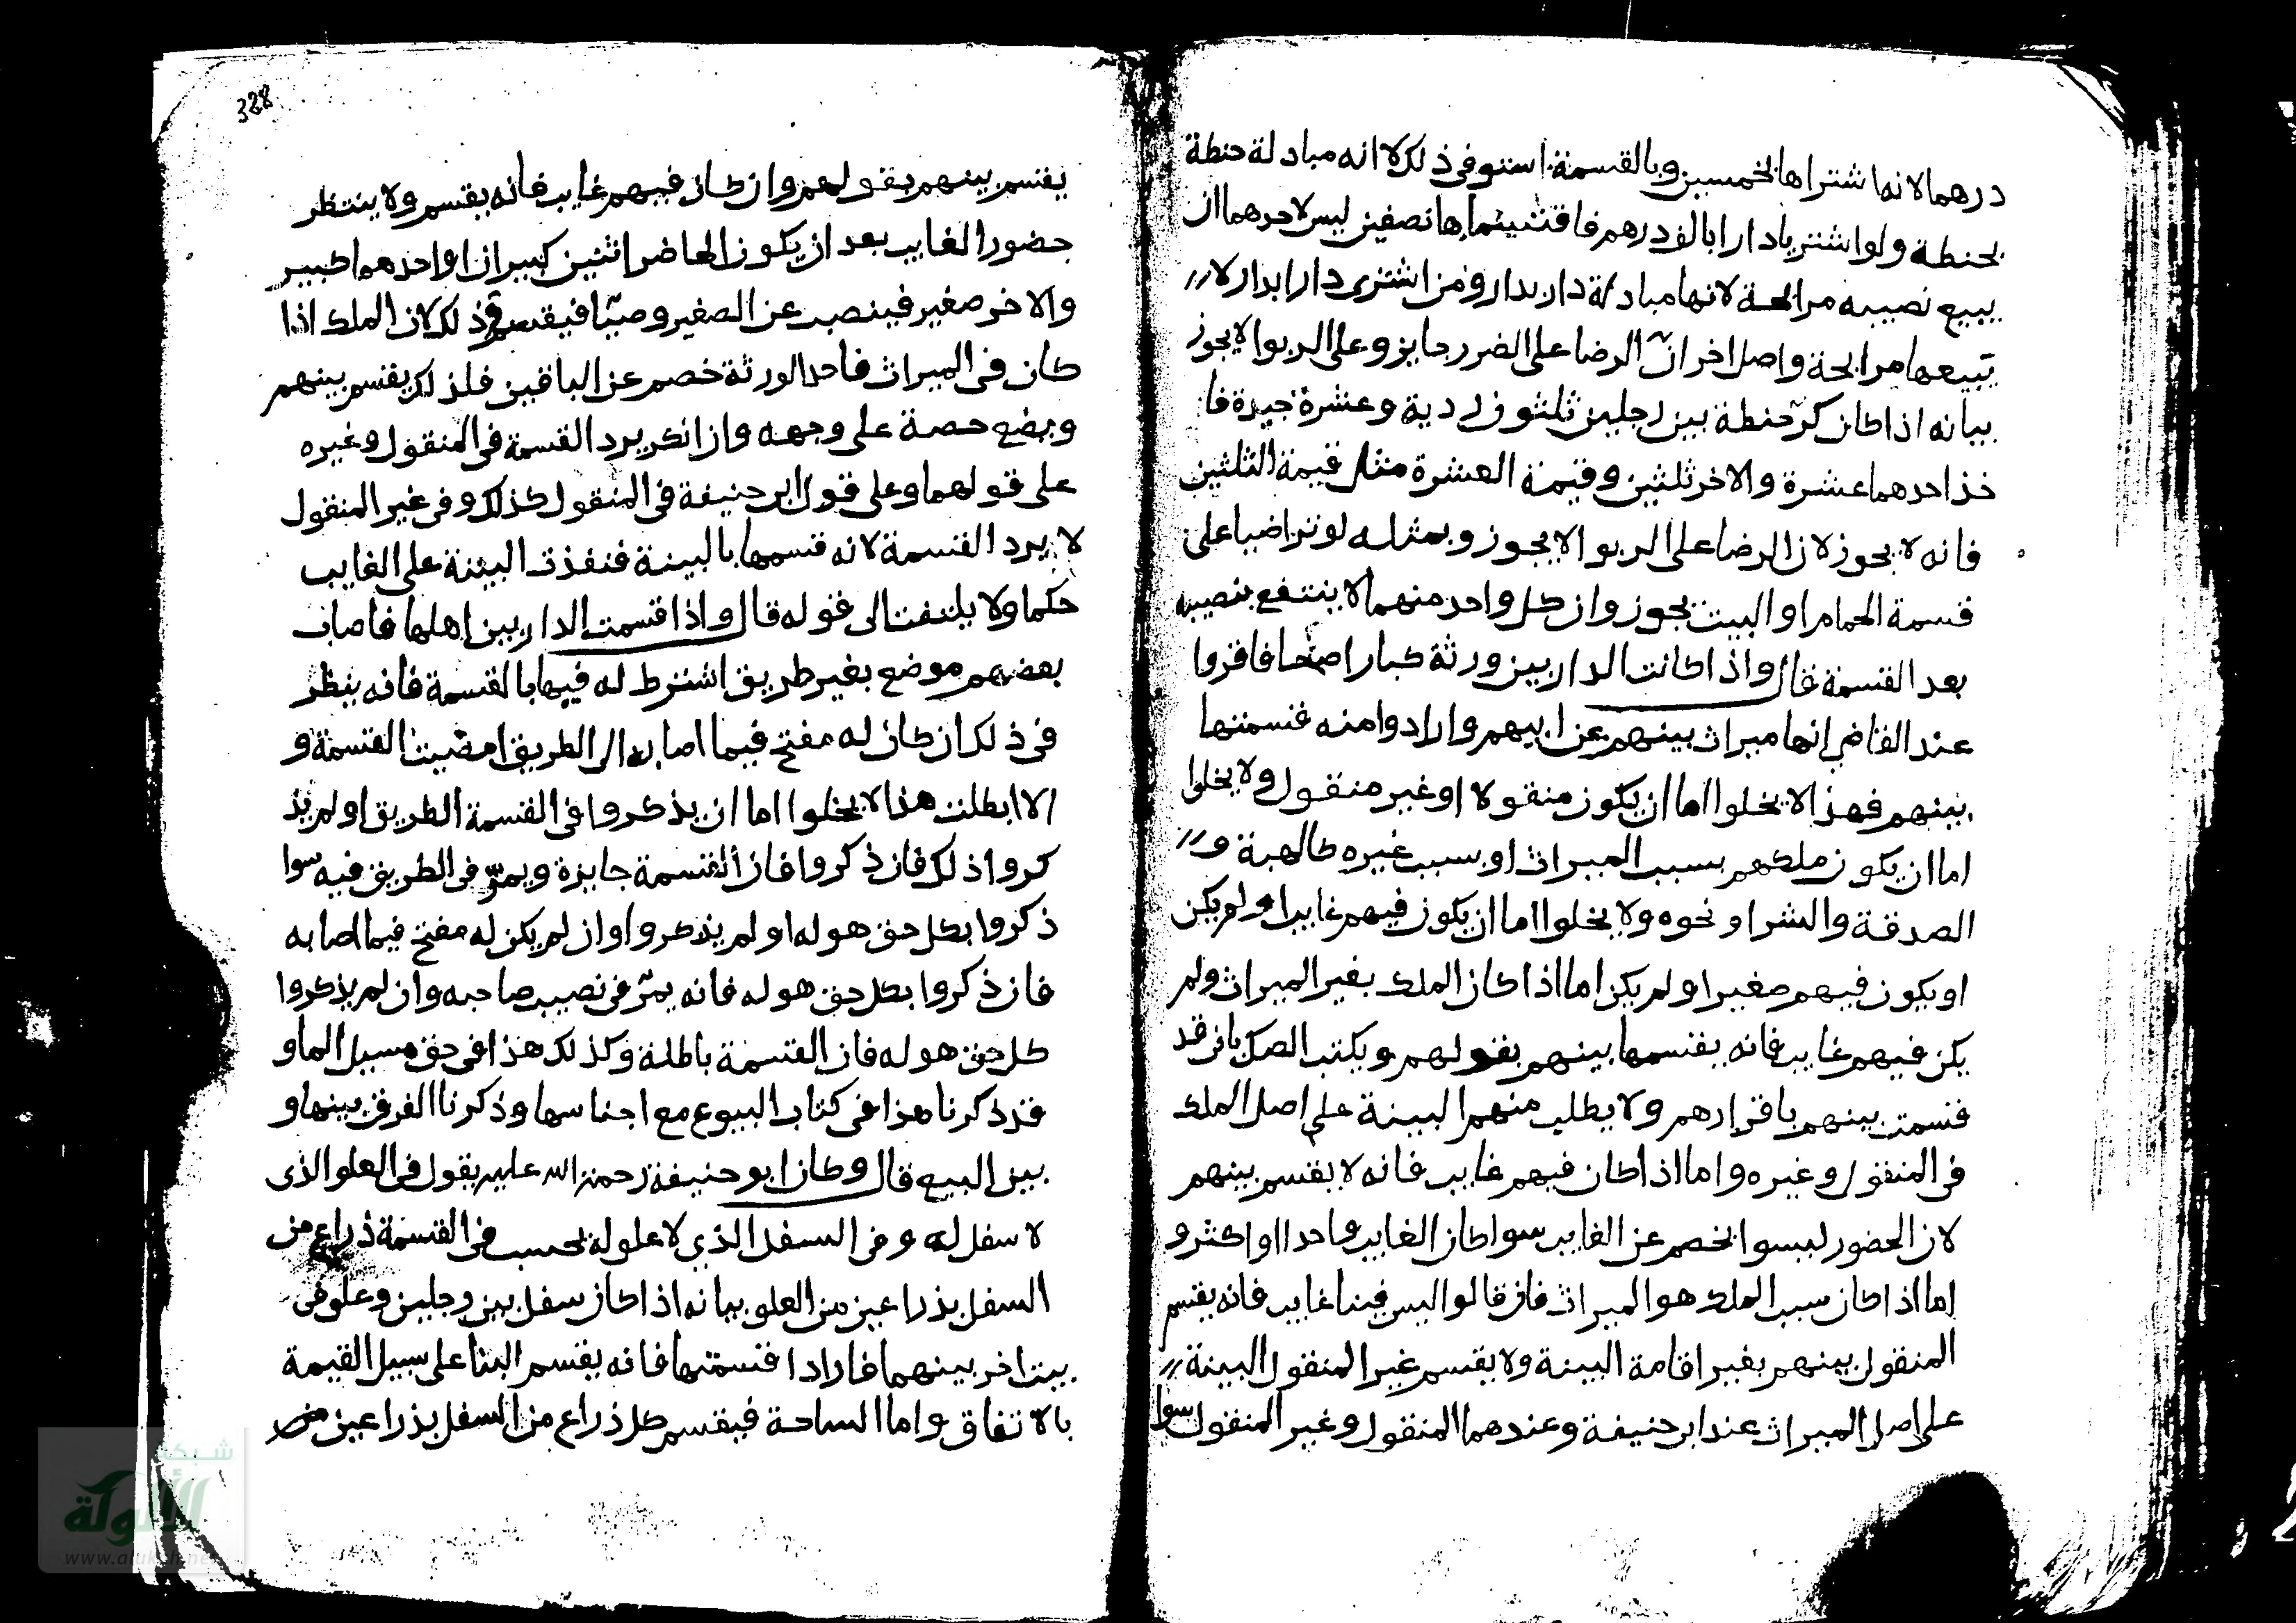 درهما لانه اشتراها بخمسين وبالقسمة استوفى ذلك لا انه مبادلة حنطة
بحنطة ولو اشتريا دارا بالف درهم فاقتسماها نصفين ليس لاحدهما ان
يبيع نصيبه مرابحة لانها مبادلة دار بدار ومن اشترى دارا بدار لا
يبيعها مرابحة واصل اخر ان الرضا على الضرر جايز وعلى الربوا لا يجوز
بيانه اذا كان كر حنطة بين رجلين ثلثون ردية وعشرة جيدة فا
خذ احدهما عشرة والاخر ثلثين وقيمة العشرة مثل قيمة الثلثين
فانه لا يجوز لان الرضا على الربوا لا يجوز وبمثله لو تراضيا على
قسمة الحمام او البيت يجوز وان كل واحد منهما لا ينتفع بنصيبه
بعد القسمة قال واذا كانت الدار بين ورثة كبار اصحا فاقروا
عند القاضي انها ميراث بينهم عن ابيهم وارادوا منه قسمتها
بينهم فهذا لا يخلوا اما ان يكون منقولا او غير منقول ولا يخلوا
اما ان يكون ملكهم بسبب الميراث او بسبب غيره كالهبة و
الصدقة والشرا ونحوه ولا يخلوا اما ان يكون فيهم غايبا او لم يكن
او يكون فيهم صغيرا ولم يكن اما اذا كان الملك بغير الميراث ولم
يكن فيهم غايب فانه يقسمها بينهم بقولهم ويكتب الصك بانى قد
قسمت بينهم باقرارهم ولا يطلب منهم البينة على اصل الملك
فى المنقول وغيره واما اذا كان فيهم غايب فانه لا يقسم بينهم
لان الحضور ليسوا بخصم عن الغايب سوا كان الغايب واحدا او اكثر و
اما اذا كان سبب الملك هو الميراث فان قالوا ليس فينا غايب فانه يقسم
المنقول بينهم بغير اقامة البينة ولا يقسم غير المنقول البينة
على اصل الميراث عند ابى حنيفة وعندهما المنقول وغير المنقول سوا
328
يقسم بينهم بقولهم وان كان فيهم غايب فانه يقسم ولا ينتظر
حضور الغايب بعد ان يكون الحاضر اثنين كبيران او احدهما كبير
والاخر صغير فينصب عن الصغير وصيا فيقسم ذلك لان الملك اذا
كان فى الميراث فاحد الورثة خصم عن الباقين فلذلك يقسم بينهم
ويضع حصة على وجهه وان انكر يرد القسمة فى المنقول وغيره
على قولهما وعلى قول ابى حنيفة فى المنقول كذلك وفى غير المنقول
لا يرد القسمة لانه قسمها بالبينة فنفذت البينة على الغايب
حكما ولا يلتفت الى قوله قال واذا قسمت الدار بين اهلها فاصاب
بعضهم موضع بغير طريق اشترط له فيها بالقسمة فانه ينظر
فى ذلك ان كان له مفتح فيما اصابه الى الطريق امضيت القسمة و
الا ابطلت هذا لا يخلوا اما ان يذكروا فى القسمة الطريق او لم يذ
كروا ذلك فان ذكروا فان القسمة جايزة ويمر فى الطريق فيه سوا
ذكروا بكل حق هو له او لم يذكروا وان لم يكن له مفتح فيما اصابه
فان ذكروا بكل حق هو له فانه يمر فى نصيب صاحبه وان لم يذكروا
كل حق هو له فان القسمة باطلة وكذلك هذا فى حق مسيل الما و
قد ذكرنا هذا فى كتاب البيوع مع اجناسها وذكرنا الفرق بينها و
بين البيع قال وكان ابو حنيفة رحمة الله عليه يقول فى العلو الذى
لا سفل له وفى السفل الذي لا علو له يحسب فى القسمة ذراع من
السفل بذراعين من العلو بيانه اذا كان سفل بين رجلين وعلو فى
بيت اخر بينهما فارادا قسمتها فانه يقسم البنا على سبيل القيمة
بالاتفاق واما الساحة فيقسم كل ذراع من السفل بذراعين من
شبكة
الألوكة